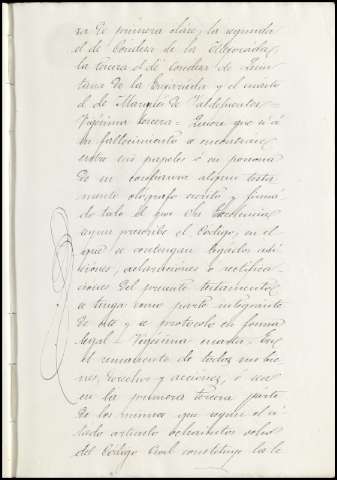 za de primera clase, la segunda
el de Condesa de la Alborada,
la tercera el de Condesa de Quin
tana de la Enjarada y el cuarto
el de Marqués de Valdefuentes =
Vigésima tercera = Quiere que si á
su fallecimiento se encontrare
entre sus papeles ó en persona
de su confianza algun testa
mento ológrafo escrito y firma
do todo él por Su Excelencia
segun prescribe el Código, en el
que se contengan legados adi
ciones, aclaraciones ó rectifica
ciones del presente testamento,
se tenga como parte integrante
de este y se protocole en forma
legal = Vigésima cuarta = En
el remanente de todos sus bie
nes, derechos y acciones, ó sea
en la primera tercera parte
de los mismos que segun el ci
tado artículo ochocientos ocho
del Código Civil constituye la le